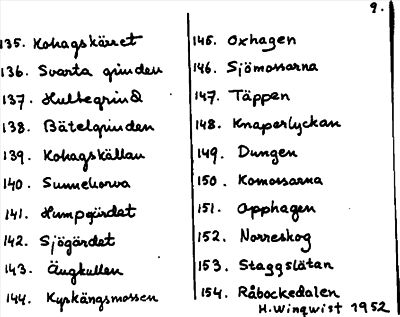 9.
135. Kohagskärret
136. Svarta grinden
137. Hultegrind
138. Bätelgrinden
139. Kohagskällan
140. Sunnekorva
141. Humpgärdet
142. Sjögärdet
143. Ängkullen
144. Kyrkängsmossen
145. Oxhagen
146. Sjömossarna
147. Täppen
148. Knaperlyckan
149. Dungen
150. Komossarna
151. Apphagen
152. Norreskog
153. Staggslätan
154. Råbockedalen
H. Winqwist 1952